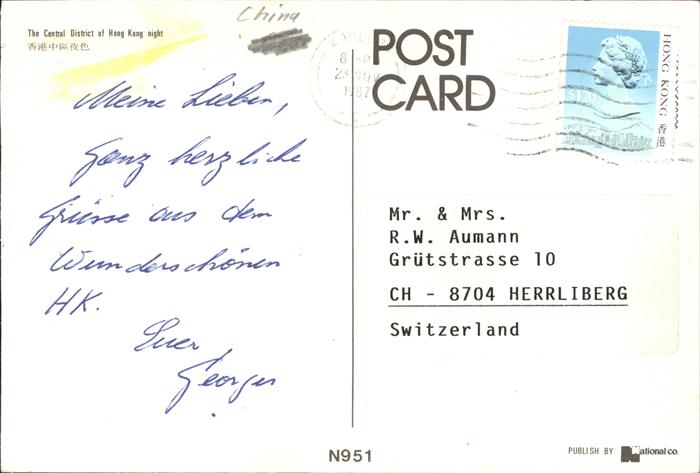 China
The Central District of Hong Kong night
香港中區夜色
POST
CARD
8 - P
1987
HONG KONG 香港
$1.70
Meine Lieben,
ganz herzliche
Grüsse aus dem
Wunderschönen
HK.
Euer
Georges
Mr. & Mrs.
R.W. Aumann
Grütstrasse 10
CH - 8704 HERRLIBERG
Switzerland
N951
PUBLISH BY National co.